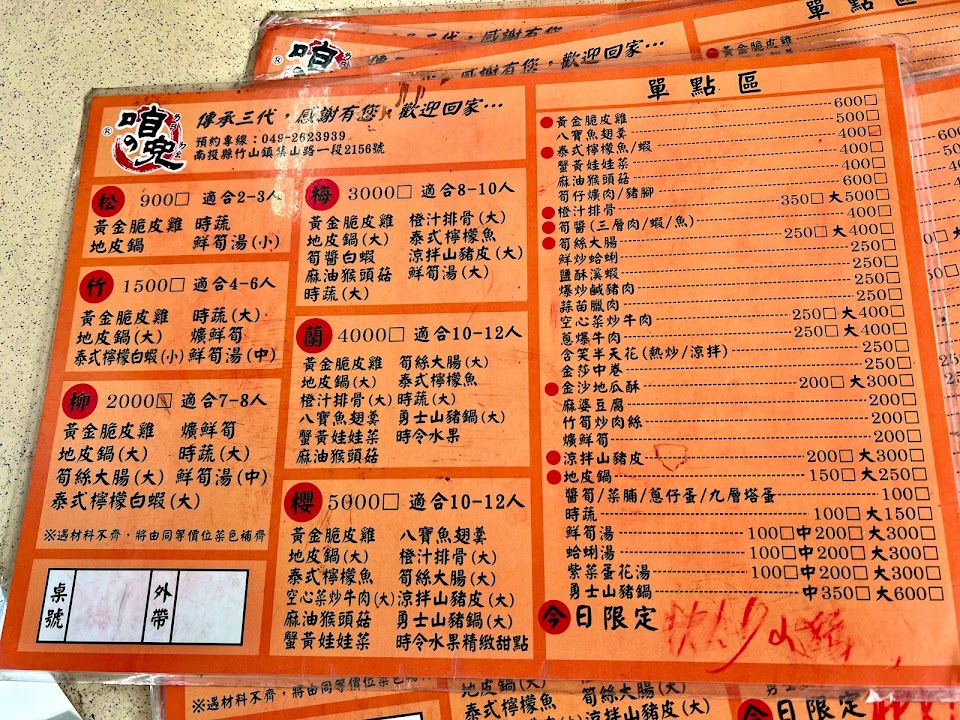 喧の鬼
傳承三代，感謝有您，歡迎回家…
預約專線：049-2623939
南投縣竹山鎮集山路一段2156號
松 900□ 適合2-3人
黃金脆皮雞 時蔬
地皮鍋 鮮筍湯(小)
竹 1500□ 適合4-6人
黃金脆皮雞 時蔬(大)
地皮鍋(大) 爌鮮筍
泰式檸檬白蝦(小) 鮮筍湯(中)
柳 2000□ 適合7-8人
黃金脆皮雞 爌鮮筍
地皮鍋(大) 時蔬(大)
筍絲大腸(大) 鮮筍湯(中)
泰式檸檬白蝦(大)
※遇材料不齊，將由同等價位菜色補齊
桌號 外帶
梅 3000□ 適合8-10人
黃金脆皮雞 橙汁排骨(大)
地皮鍋(大) 泰式檸檬魚
筍醬白蝦 涼拌山豬皮(大)
麻油猴頭菇 鮮筍湯(大)
時蔬(大)
蘭 4000□ 適合10-12人
黃金脆皮雞 筍絲大腸(大)
地皮鍋(大) 泰式檸檬魚
橙汁排骨(大) 時蔬(大)
八寶魚翅羹 勇士山豬鍋(大)
蟹黃娃娃菜 時令水果
麻油猴頭菇
櫻 5000□ 適合10-12人
黃金脆皮雞 八寶魚翅羹
地皮鍋(大) 橙汁排骨(大)
泰式檸檬魚 筍絲大腸(大)
空心菜炒牛肉(大) 涼拌山豬皮(大)
麻油猴頭菇 勇士山豬鍋(大)
蟹黃娃娃菜 時令水果精緻甜點
單點區
黃金脆皮雞 600□
八寶魚翅羹 500□
泰式檸檬魚/蝦 400□
蟹黃娃娃菜 400□
麻油猴頭菇 400□
筍仔爌肉/豬腳 600□
橙汁排骨 350□ 大500□
筍醬(三層肉/蝦/魚) 400□
筍絲大腸 250□ 大400□
鮮炒蛤蜊 250□
鹽酥溪蝦 250□
爆炒鹹豬肉 250□
蒜苗臘肉 250□
空心菜炒牛肉 250□ 大400□
蔥爆牛肉 250□ 大400□
含笑半天花(熱炒/涼拌) 250□
金莎中卷 250□
金沙地瓜酥 200□ 大300□
麻婆豆腐 200□
竹筍炒肉絲 200□
爌鮮筍 200□
涼拌山豬皮 200□ 大300□
地皮鍋 150□ 大250□
醬筍/菜脯/蔥仔蛋/九層塔蛋 100□
時蔬 100□ 大150□
鮮筍湯 100□ 中200□ 大300□
蛤蜊湯 100□ 中200□ 大300□
紫菜蛋花湯 100□ 中200□ 大300□
勇士山豬鍋 中350□ 大600□
今日限定
※遇材料不齊，將由同等價位菜色補齊
地皮鍋(大) 筍絲大腸(大)
今日限定